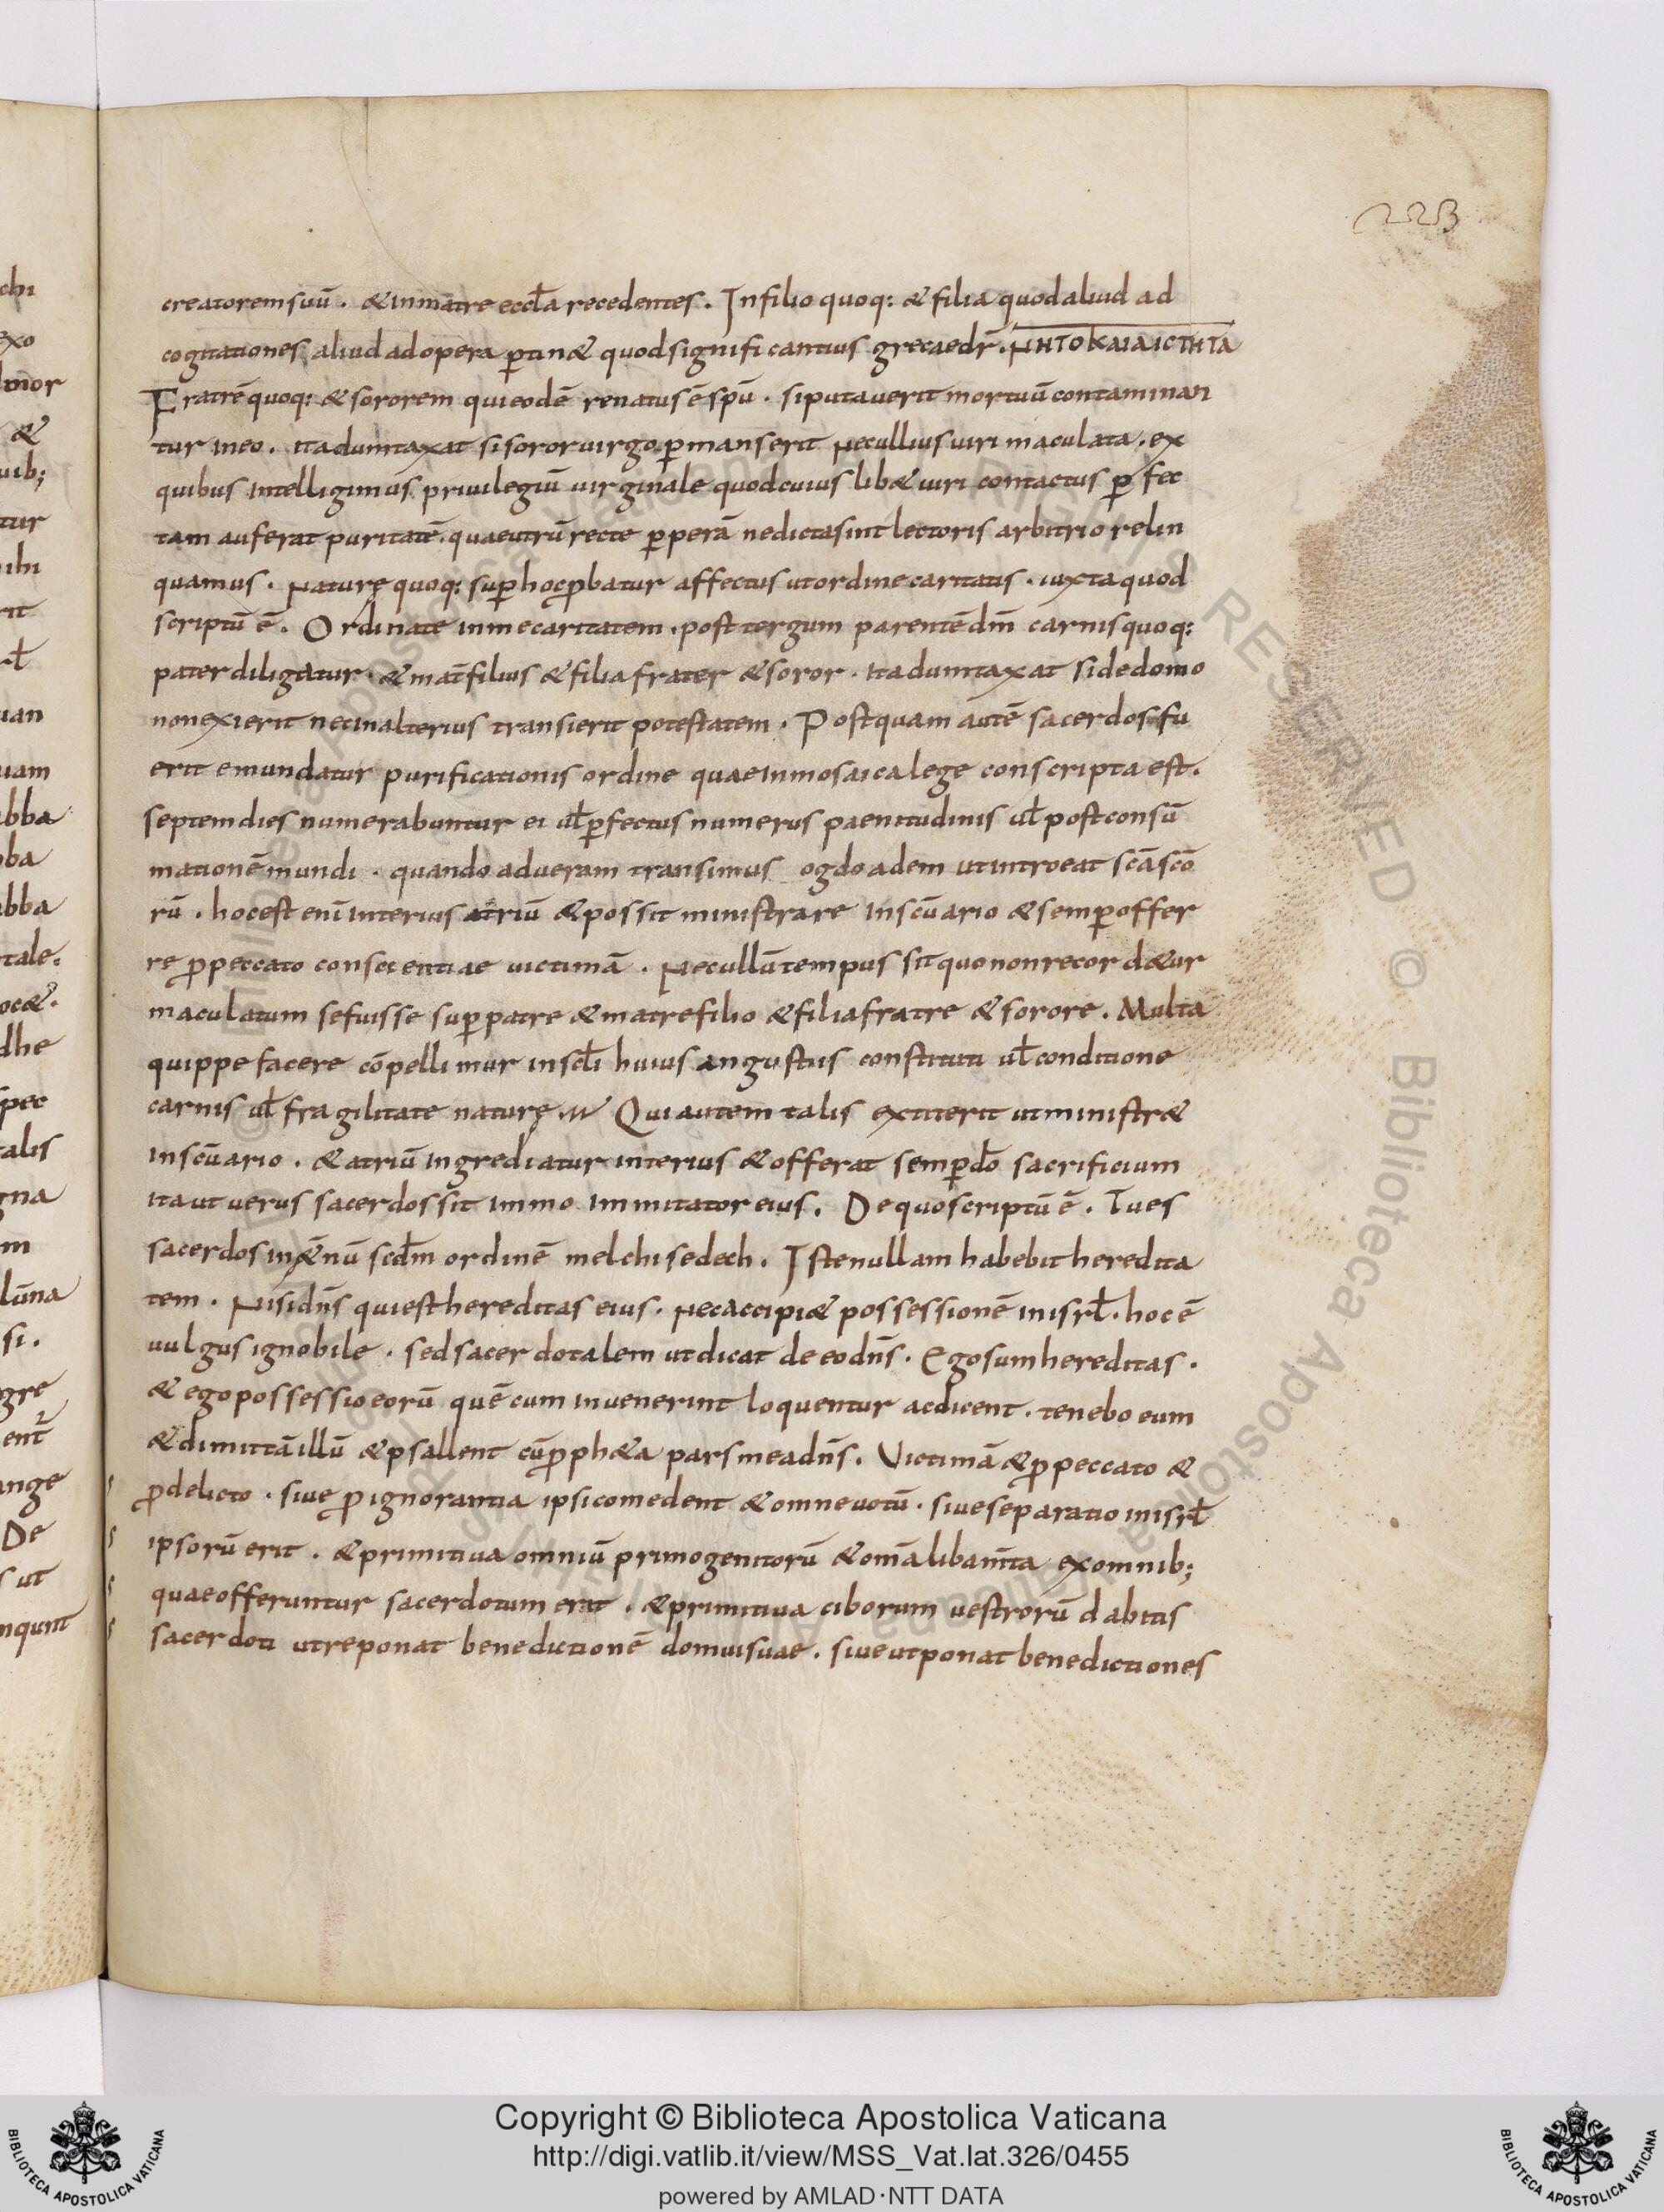 223
creatorem suū . & in matre eccl̄a recedentes . In filio quoq: & filia quod aliud ad
cogitationes aliud ad opera ꝑtin& quod significantius grecae dr̄ . ΝΗΤΟΚΑΙΑΙCΤΗΤΑ
Fratrē quoq: & sororem qui eodē renatus ē sp̄u . si putauerit mortuū contaminan
tur in eo . ita dumtaxat si soror uirgo ꝑmanserit nec ullius uiri maculata . ex
quibus intelligimus priuilegiū uirginale quod cuius lib& uiri contactus ꝑfec
tam auferat puritatē . quae utrū recte ꝑperā ne dicta sint lectoris arbitrio relin
quamus . Naturę quoq: suꝑ hoc ꝓbatur affectus ut ordine caritatis . iuxta quod
scriptū ē . Ordinate in me caritatem . post tergum parentē dm̄ carnis quoq:
pater diligatur . & mat̄ filius & filia frater & soror . Ita dumtaxat si de domo
non exierit nec in alterius transierit potestatem . Postquam autē sacerdos fu
erit emundatur purificationis ordine quae in mosaica lege conscripta est .
septem dies numerabuntur ei ul̄ ꝑfectus numerus paenitudinis ul̄ post consū
mationē mundi . quando ad ueram transimus ogdoadem ut introeat sc̄a sc̄o
rū . hoc est enī interius atriū & possit ministrare in sc̄uario & semꝑ offer
re ꝓ peccato conscientiae uictimā . Nec ullū tempus sit quo non record&ur
maculatum se fuisse suꝑ patre & matre filio & filia fratre & sorore . Multa
quippe facere cōpellimur in scl̄i huius angustiis constituti ul̄ conditione
carnis ul̄ fragilitate naturę . Qui autem talis extiterit ut ministr&
in sc̄uario . & atriū ingrediatur interius & offerat semꝑ dō sacrificium
ita ut uerus sacerdos sit immo immitator eius . De quo scriptū ē . Tu es
sacerdos in &̄nū scd̄m ordinē melchisedech . Iste nullam habebit heredita
tem . Nisi dn̄s qui est hereditas eius . Nec accipi& possessionē in isrl̄ . hoc ē
uulgus ignobile . sed sacerdotalem ut dicat de eo dn̄s . Ego sum hereditas .
& ego possessio eorū quē cum inuenerint loquentur ac dicent . tenebo eum
& dimittā illū & psallent cū ꝓph&a pars mea dn̄s . Uictimā & ꝓ peccato &
ꝓ delicto . siue ꝓ ignorantia ipsi comedent & omne uotū . siue separatio in isrl̄
ipsorū erit . & primitiua omniū primogenitorū & omā libam̄ta ex omnib;
quae offeruntur sacerdotum erit . & primitiua ciborum uestrorū dabitis
sacerdoti ut reponat benedictionē domui suae . siue ut ponat benedictiones
Copyright © Biblioteca Apostolica Vaticana
http://digi.vatlib.it/view/MSS_Vat.lat.326/0455
powered by AMLAD·NTT DATA